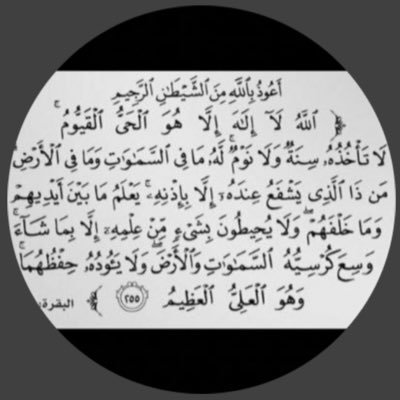 أَعُوذُ بِٱللَّهِ مِنَ ٱلشَّيْطَانِ ٱلرَّجِيمِ
ٱللَّهُ لَآ إِلَٰهَ إِلَّا هُوَ ٱلْحَىُّ ٱلْقَيُّومُ ۚ
لَا تَأْخُذُهُۥ سِنَةٌ وَلَا نَوْمٌ ۚ لَّهُۥ مَا فِى ٱلسَّمَٰوَٰتِ وَمَا فِى ٱلْأَرْضِ ۗ
مَن ذَا ٱلَّذِى يَشْفَعُ عِندَهُۥٓ إِلَّا بِإِذْنِهِۦ ۚ يَعْلَمُ مَا بَيْنَ أَيْدِيهِمْ
وَمَا خَلْفَهُمْ ۖ وَلَا يُحِيطُونَ بِشَىْءٍ مِّنْ عِلْمِهِۦٓ إِلَّا بِمَا شَآءَ ۚ
وَسِعَ كُرْسِيُّهُ ٱلسَّمَٰوَٰتِ وَٱلْأَرْضَ ۖ وَلَا يَـُٔودُهُۥ حِفْظُهُمَا ۚ
وَهُوَ ٱلْعَلِىُّ ٱلْعَظِيمُ ٢٥٥ البقرة: